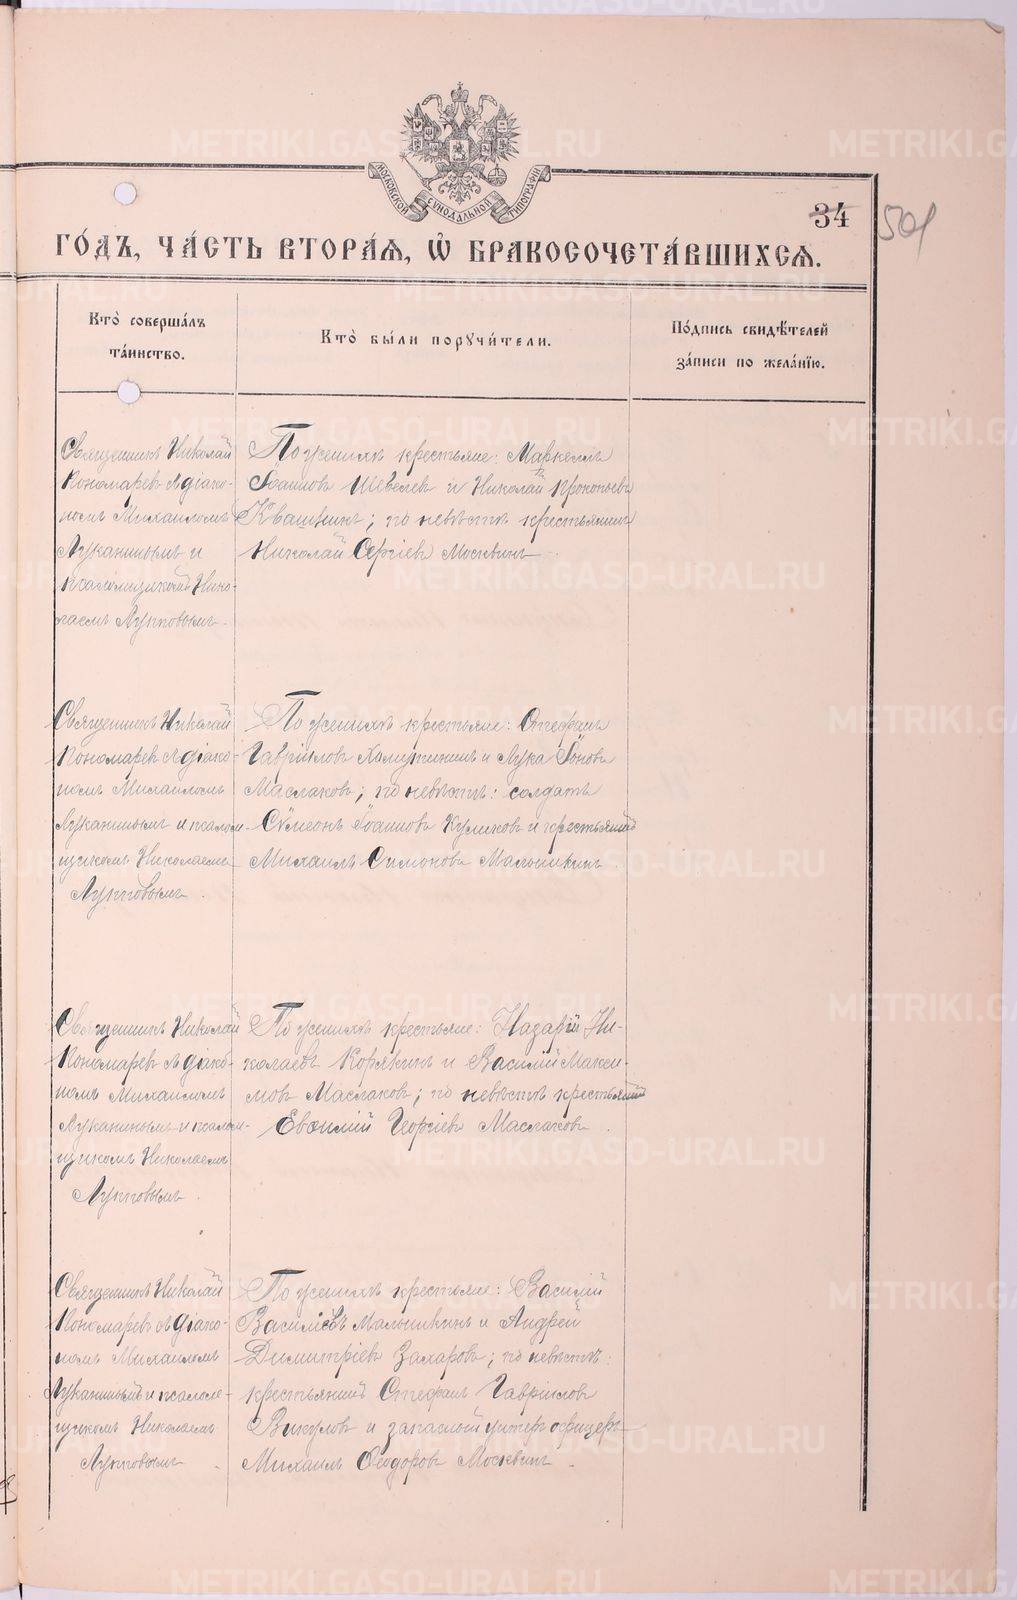 МОСКОВСКОЙ СѴНОДАЛЬНОЙ ТИПОГРАФІИ
34
501
ГО́ДЪ, ЧА́СТЬ ВТОРА́Ѧ, Ѡ҆ БРАКОСОЧЕТА́ВШИХСѦ.
Кто̀ соверша́лъ
та́инство.
Кто̀ бы́ли порꙋчи́тели.
По́дпись свидѣ́телей
за́писи по жела́нїю.
Священникъ Николай
Пономаревъ съ діако-
номъ Михаиломъ
Луканинымъ и
псаломщикомъ Нико-
лаемъ Лупповымъ.
По женихѣ крестьяне: Маркеллъ
Іоанновъ Шевелевъ и Николай Прокопьевъ
Квашнинъ; по невѣстѣ крестьянинъ
Николай Сергіевъ Москвинъ
Священникъ Николай
Пономаревъ съ діако-
номъ Михаиломъ
Луканинымъ и псалом-
щикомъ Николаемъ
Лупповымъ.
По женихѣ крестьяне: Стефанъ
Гавріиловъ и Лука Іоновъ
Маслаковъ; по невѣстѣ: солдатъ
Сѵмеонъ Іоанновъ Куликовъ и крестьянинъ
Михаилъ Симоновъ Мальшкинъ
Священникъ Николай
Пономаревъ съ діако-
номъ Михаиломъ
Луканинымъ и псалом-
щикомъ Николаемъ
Лупповымъ.
По женихѣ крестьяне: Назарій Ни-
колаевъ Корякинъ и Василій Макси-
мовъ Маслаковъ; по невѣстѣ крестьянинъ
Евѳимій Георгіевъ Маслаковъ.
Священникъ Николай
Пономаревъ съ діако-
номъ Михаиломъ
Луканинымъ и псалом-
щикомъ Николаемъ
Лупповымъ.
По женихѣ крестьяне: Василій
Васильевъ Мальшкинъ и Андрей
Димитріевъ Захаровъ; по невѣстѣ:
крестьянинъ Стефанъ Гавріиловъ
Викуловъ и запасной унтеръ офицеръ
Михаилъ Ѳеодоровъ Москвинъ.
METRIKI.GASO-URAL.RU